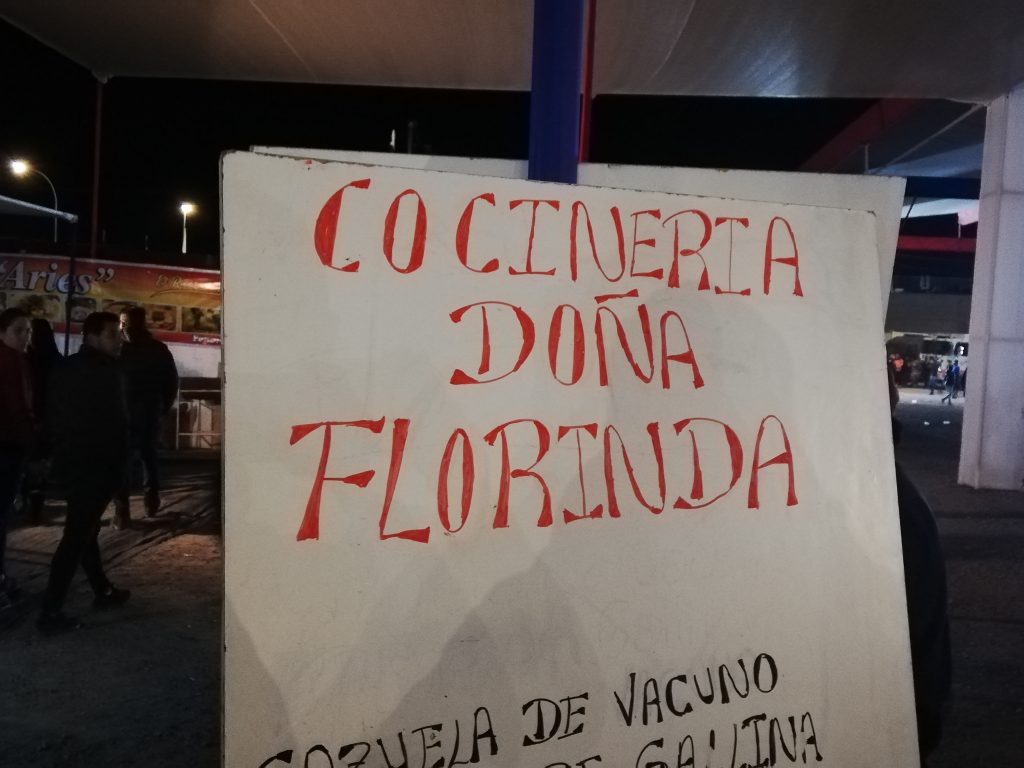 COCINERIA
DOÑA
FLORINDA
COZUELA DE VACUNO
DE GALLINA
"Aries"